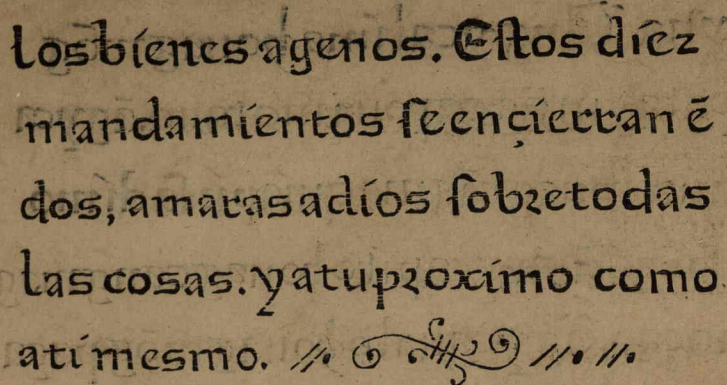 los bienes agenos. Eſtos diez
mandamientos ſe ençierran ẽ
dos, amaras a dios ſobre todas
las cosas. y a tu proximo como
a ti mesmo.